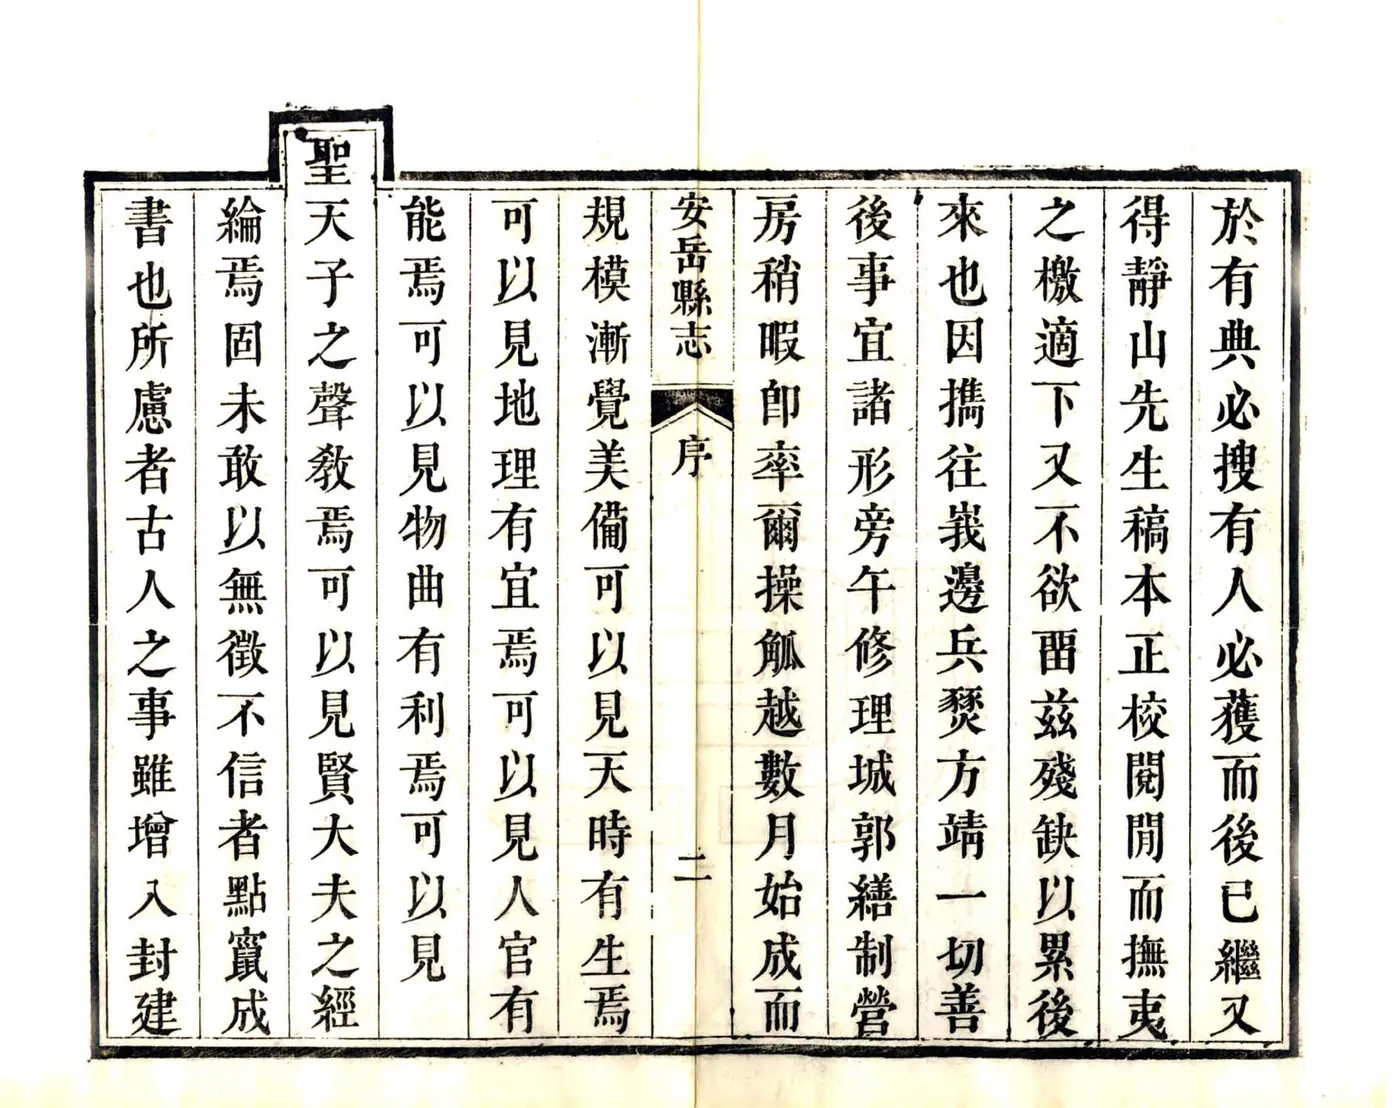 於有典必搜有人必獲而後已繼又
得靜山先生稿本正校閱間而撫夷
之檄適下又不欲畱茲殘缺以累後
來也因攜往峩邊兵燹方靖一切善
後事宜諸形旁午修理城郭繕制營
房稍暇卽率爾操觚越數月始成而
安岳縣志
序
二
規模漸覺美備可以見天時有生焉
可以見地理有宜焉可以見人官有
能焉可以見物曲有利焉可以見
聖天子之聲敎焉可以見賢大夫之經
綸焉固未敢以無徵不信者點竄成
書也所慮者古人之事雖增入封建